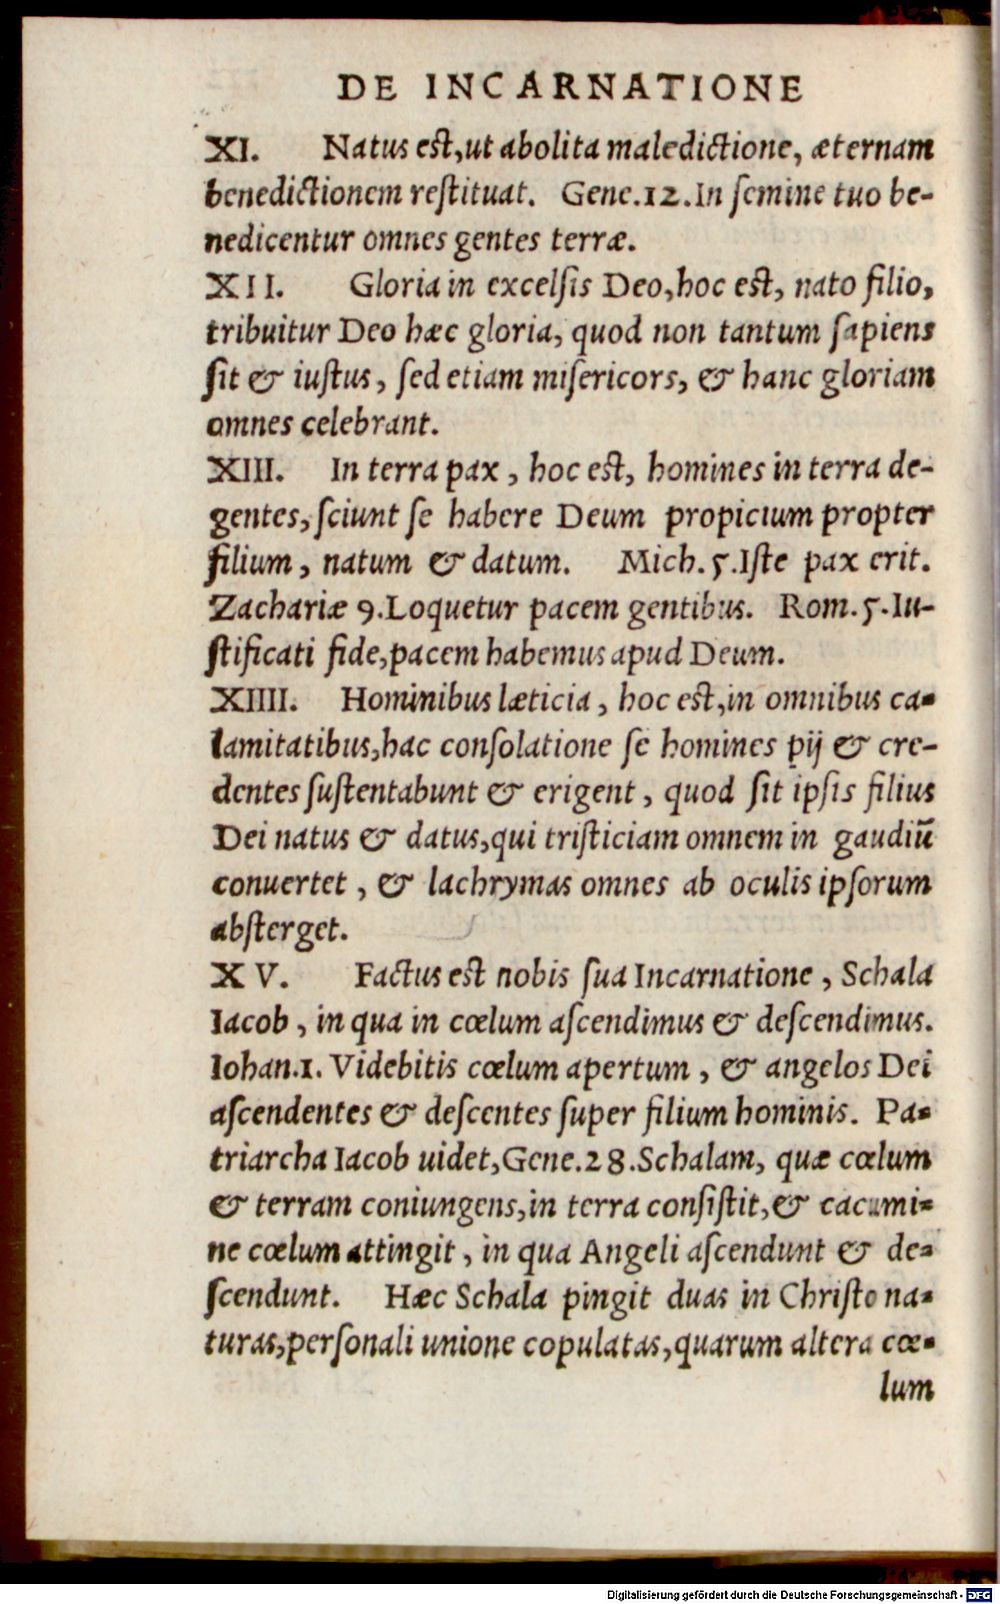 DE INCARNATIONE
XI. Natus est, ut abolita maledictione, æternam
benedictionem reſtituat. Gene.12.In ſemine tuo be-
nedicentur omnes gentes terræ.
XII. Gloria in excelſis Deo, hoc est, nato filio,
tribuitur Deo hæc gloria, quod non tantum ſapiens
ſit & iuſtus, ſed etiam miſericors, & hanc gloriam
omnes celebrant.
XIII. In terra pax, hoc est, homines in terra de-
gentes, ſciunt ſe habere Deum propicium propter
filium, natum & datum. Mich.5.Iſte pax erit.
Zachariæ 9.Loquetur pacem gentibus. Rom.5.Iu-
ſtificati fide, pacem habemus apud Deum.
XIIII. Hominibus læticia, hoc est, in omnibus ca-
lamitatibus, hac conſolatione ſe homines pij & cre-
dentes ſuſtentabunt & erigent, quod ſit ipſis filius
Dei natus & datus, qui triſticiam omnem in gaudiū
conuertet, & lachrymas omnes ab oculis ipſorum
abſterget.
XV. Factus est nobis ſua Incarnatione, Schala
Iacob, in qua in cœlum aſcendimus & deſcendimus.
Iohan.1. Videbitis cœlum apertum, & angelos Dei
aſcendentes & deſcentes ſuper filium hominis. Pa-
triarcha Iacob uidet, Gene.28.Schalam, quæ cœlum
& terram coniungens, in terra conſiſtit, & cacumi-
ne cœlum attingit, in qua Angeli aſcendunt & de-
ſcendunt. Hæc Schala pingit duas in Chriſto na-
turas, perſonali unione copulatas, quarum altera cœ-
lum
Digitalisierung gefördert durch die Deutsche Forschungsgemeinschaft - DFG